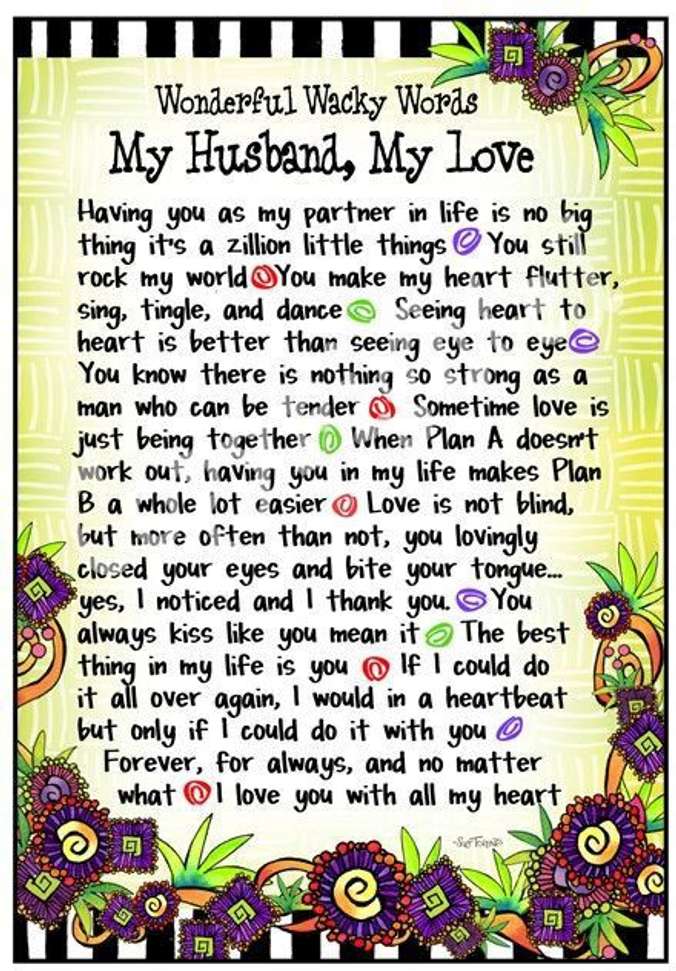 Wonderful Wacky Words
My Husband, My Love
Having you as my partner in life is no big
thing it's a zillion little things You still
rock my world You make my heart flutter,
sing, tingle, and dance Seeing heart to
heart is better than seeing eye to eye
You know there is nothing so strong as a
man who can be tender Sometime love is
just being together When Plan A doesn't
work out, having you in my life makes Plan
B a whole lot easier Love is not blind,
but more often than not, you lovingly
closed your eyes and bite your tongue...
yes, I noticed and I thank you. You
always kiss like you mean it The best
thing in my life is you If I could do
it all over again, I would in a heartbeat
but only if I could do it with you
Forever, for always, and no matter
what I love you with all my heart